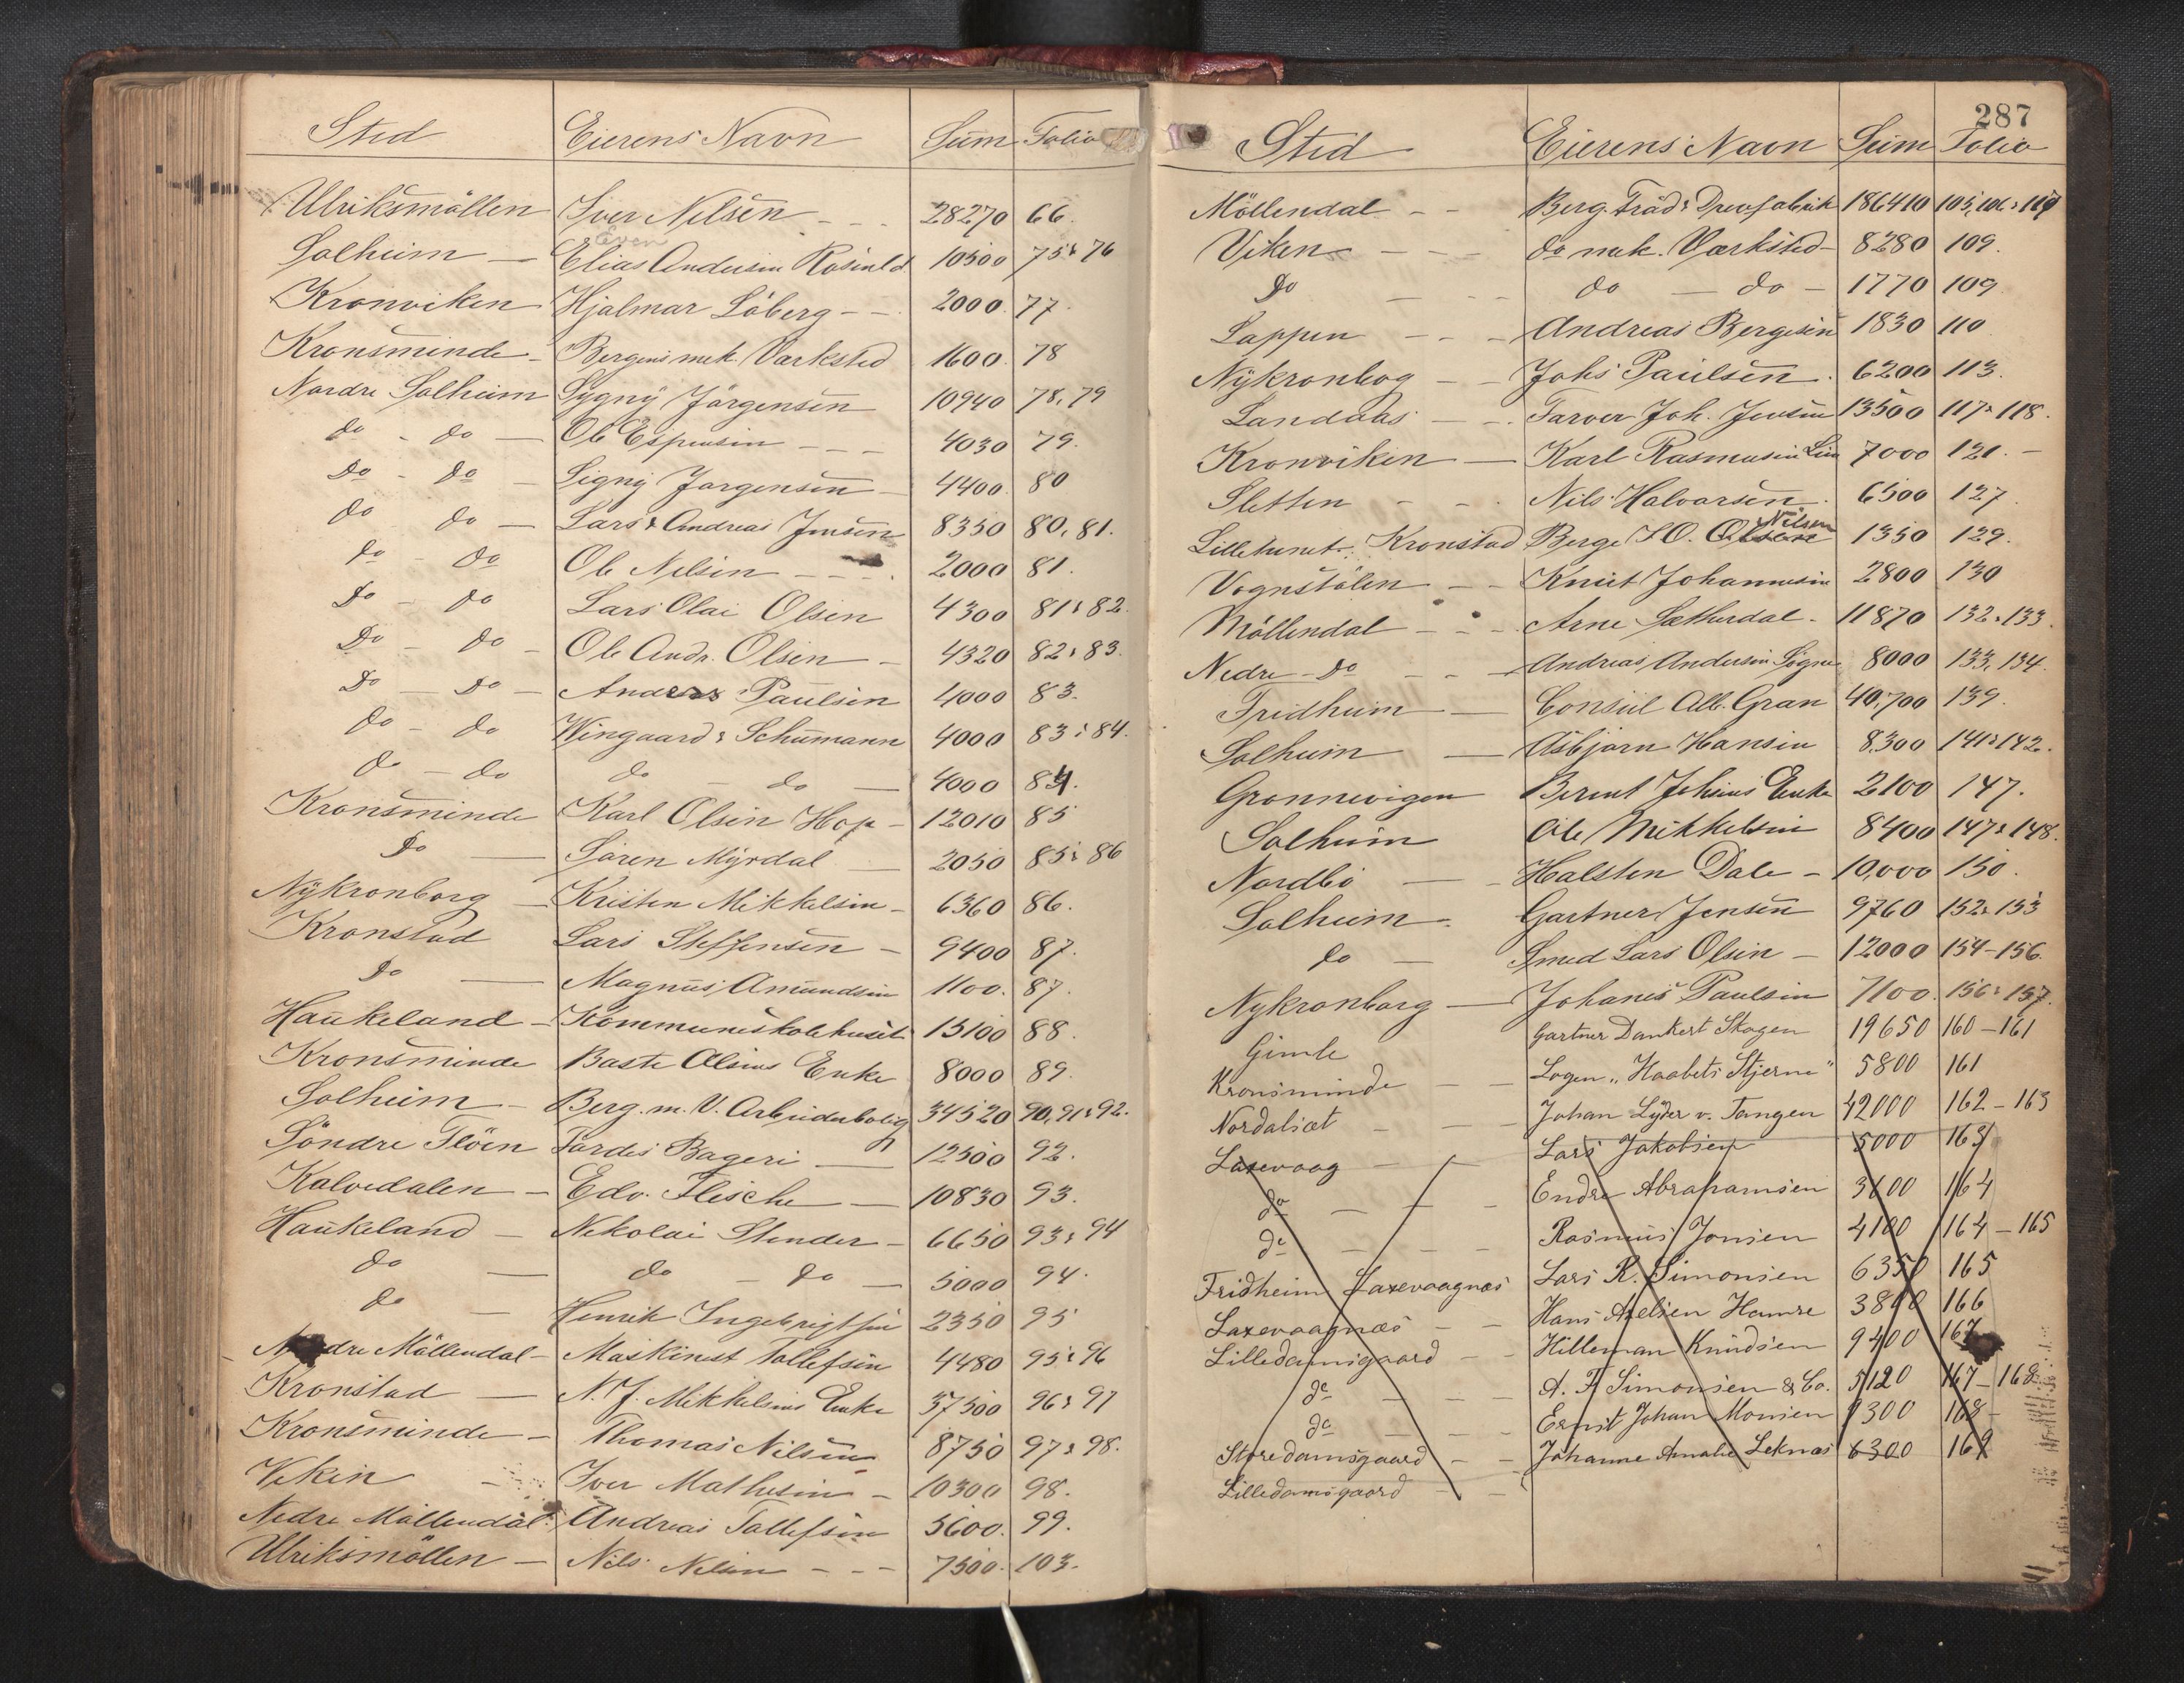 Sted Eierens Navn Sum Folio
Ulriksmöllen Iver Nilsen 28270 66.
Even
Solheim Elias Andersen 10500 75 & 76
Kronviken Hjalmar Löberg 2000 77
Kronsminde Bergens mek. Værksted 1600 78
Nordre Solheim Sygny Jörgensen 10940 78, 79
do do Ole Espensen 4030 79.
Do do Signy Jörgensen 4400 80
do do Lars & Andreas Jensen 8350 80, 81.
do do Ole Nilsen 2000 81.
Do do Lars Olai Olsen 4300 81 & 82.
Do do Ole Andr. Olsen 4320 82 & 83.
Do Do Anders Paulsen 4000 83.
do do Wingaard & Schumann 4000 83 & 84.
do do do do 4000 84.
Kronsminde Karl Olsen Hop 12010 85
Do Sören Myrdal 2050 85 & 86
Nykronborg Kristen Mikkelsen 6360 86.
Kronstad Lars Steffensen 9400 87.
Do Magnus Amundsen 1100. 87.
Haukeland Kommuneskolehuset 15100 88.
Kronsminde Baste Olsens Enke 8000 89.
Solheim Berg. m. V. Arbeiderbolig 34520 90, 91 & 92.
Söndre Flöen Fardes Bageri 12500 92.
Kalvedalen Edv. Flesche 10830 93.
Haukeland Nikolai Stender 6650 93 & 94
do do do 5000 94.
do Henrik Ingebrigtsen 2350 95
Möllendal Maskinist Tollefsen 4480 95 & 96
Kronstad N. J. Mikkelsens Enke 37500 96 & 97
Kronsminde Thomas Nilsen 8750 97 & 98.
Viken Iver Mathesen 10300 98.
Nedre Möllendal Andreas Tollefsen 5600. 99.
Ulriksmöllen Nils Nilsen 7500. 103.
287
Sted Eierens Navn Sum Folio
Möllendal Berg. Traad & Drevfabrik 186410 105, 106 & 107
Viken do mek. Værksted 8280 109.
Do do do 1770 109
Lappen Andreas Bergesen 1830 110
Nykronborg Johs Paulsen 6200 113.
Landaas Farver Joh. Jensen 13500 117 & 118.
Kronviken Karl Rasmusen Lien 7000 121.
Sletten Nils Halvorsen 6500 127
Nilsen
Lilletunet Kronstad Berge I O. Olsen 1350 129.
Vognstölen Knut Johannesen 2800 130
Möllendal Arne Sætherdal 11870 132 & 133.
Nedre Do Andreas Andersen 8000 133, 134.
Fridheim Consul Alb. Gran 40,700 139.
Solheim Asbjörn Hansen 8,300 141 & 142.
Grönnevigen Berent Johsens Enke 2100 147.
Solheim Ole Mikkelsen 8400 147 & 148.
Nordbö Halsten Dale 10,000 150.
Solheim Gartner Jensen 9760 152 & 153
do Smed Lars Olsen 12000 154-156.
Nykronborg Johanes Paulsen 7100. 156 & 157.
Gimle Gartner Dankert Skagen 19650 160-161
Kronsminde Logen "Haabets Stjerne" 5800 161
Nordalsæt Johan Lyder v. Tangen 42000 162-163
Laxevaag Lars Jakobsen 5000 163
do Endre Abrahamsen 3600 164
do Rasmus Jonsen 4100 164-165
Fridheim Laxevaagnæs Lars R. Simonsen 6350 165
Laxevaagnæs Hans Axelsen Hamre 3800 166
Lilledamsgaard Hilleman Knudsen 9400 167
do A. F. Simonsen & Co. 5120 167-168
do Ernst Johan Monsen 9300 168
Storedamsgaard Johanne Amalie Leknæs 6300 169
Lilledamsgaard